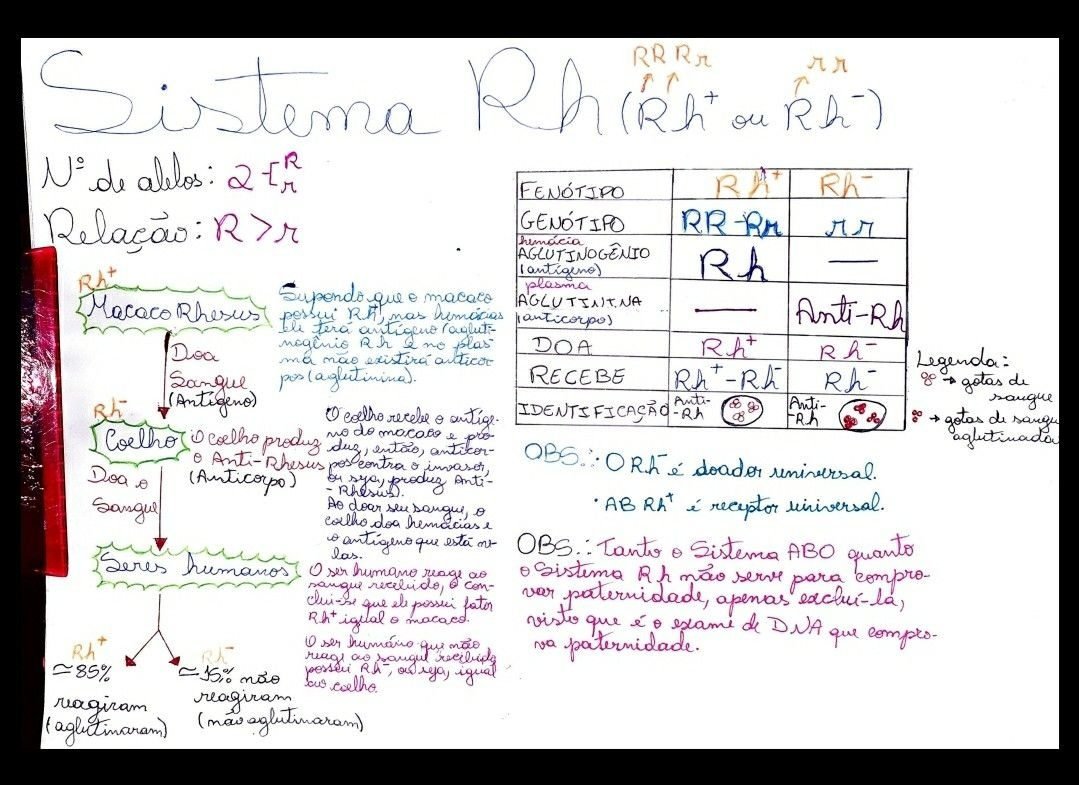 RR Rr rr
Sistema Rh (Rh⁺ ou Rh⁻)
Nº de alelos: 2 -[R r
Relação: R > r
Rh⁺
Macaco Rhesus
Doa
Sangue
(Antígeno)
Supondo que o macaco
possui Rh⁺, nas hemácias
ele terá antígeno (agluti-
nogênio Rh e no plas
ma não existirá anticor
pos (aglutinina).
Rh⁻
Coelho
O coelho produz
o Anti-Rhesus
(Anticorpo)
O coelho recebe o antíge-
no do macaco e pro-
duz, então, anticor-
pos contra o invasor,
ou seja, produz Anti-
-Rhesus).
Ao doar seu sangue, o
coelho doa hemácias e
o antígeno que está ne-
las.
Doa o
Sangue
Seres humanos
O ser humano reage ao
sangue recebido, e con-
clui-se que ele possui fator
Rh⁺ igual o macaco.
O ser humano que não
reage ao sangue recebido
possui Rh⁻, ou seja, igual
ao coelho.
Rh⁺
≃85%
reagiram
(aglutinaram)
Rh⁻
≃15% não
reagiram
(não aglutinaram)
FENÓTIPO Rh⁺ Rh⁻
GENÓTIPO RR-Rr rr
hemácia
AGLUTINOGÊNIO
(antígeno)
Rh —
plasma
AGLUTININA
(anticorpo)
— Anti-Rh
DOA Rh⁺ Rh⁻
RECEBE Rh⁺-Rh⁻ Rh⁻
IDENTIFICAÇÃO Anti-
-Rh
Anti-
-Rh
Legenda:
→ gotas de
sangue
→ gotas de sangue
aglutinada
OBS.: O Rh⁻ é doador universal.
· AB Rh⁺ é receptor universal.
OBS.: Tanto o Sistema ABO quanto
o Sistema Rh não serve para compro-
var paternidade, apenas excluí-la,
visto que é o exame de DNA que compro-
va paternidade.